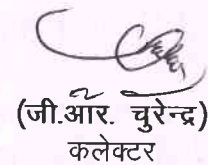 (जी.आर. चुरेन्द्र)
कलेक्टर